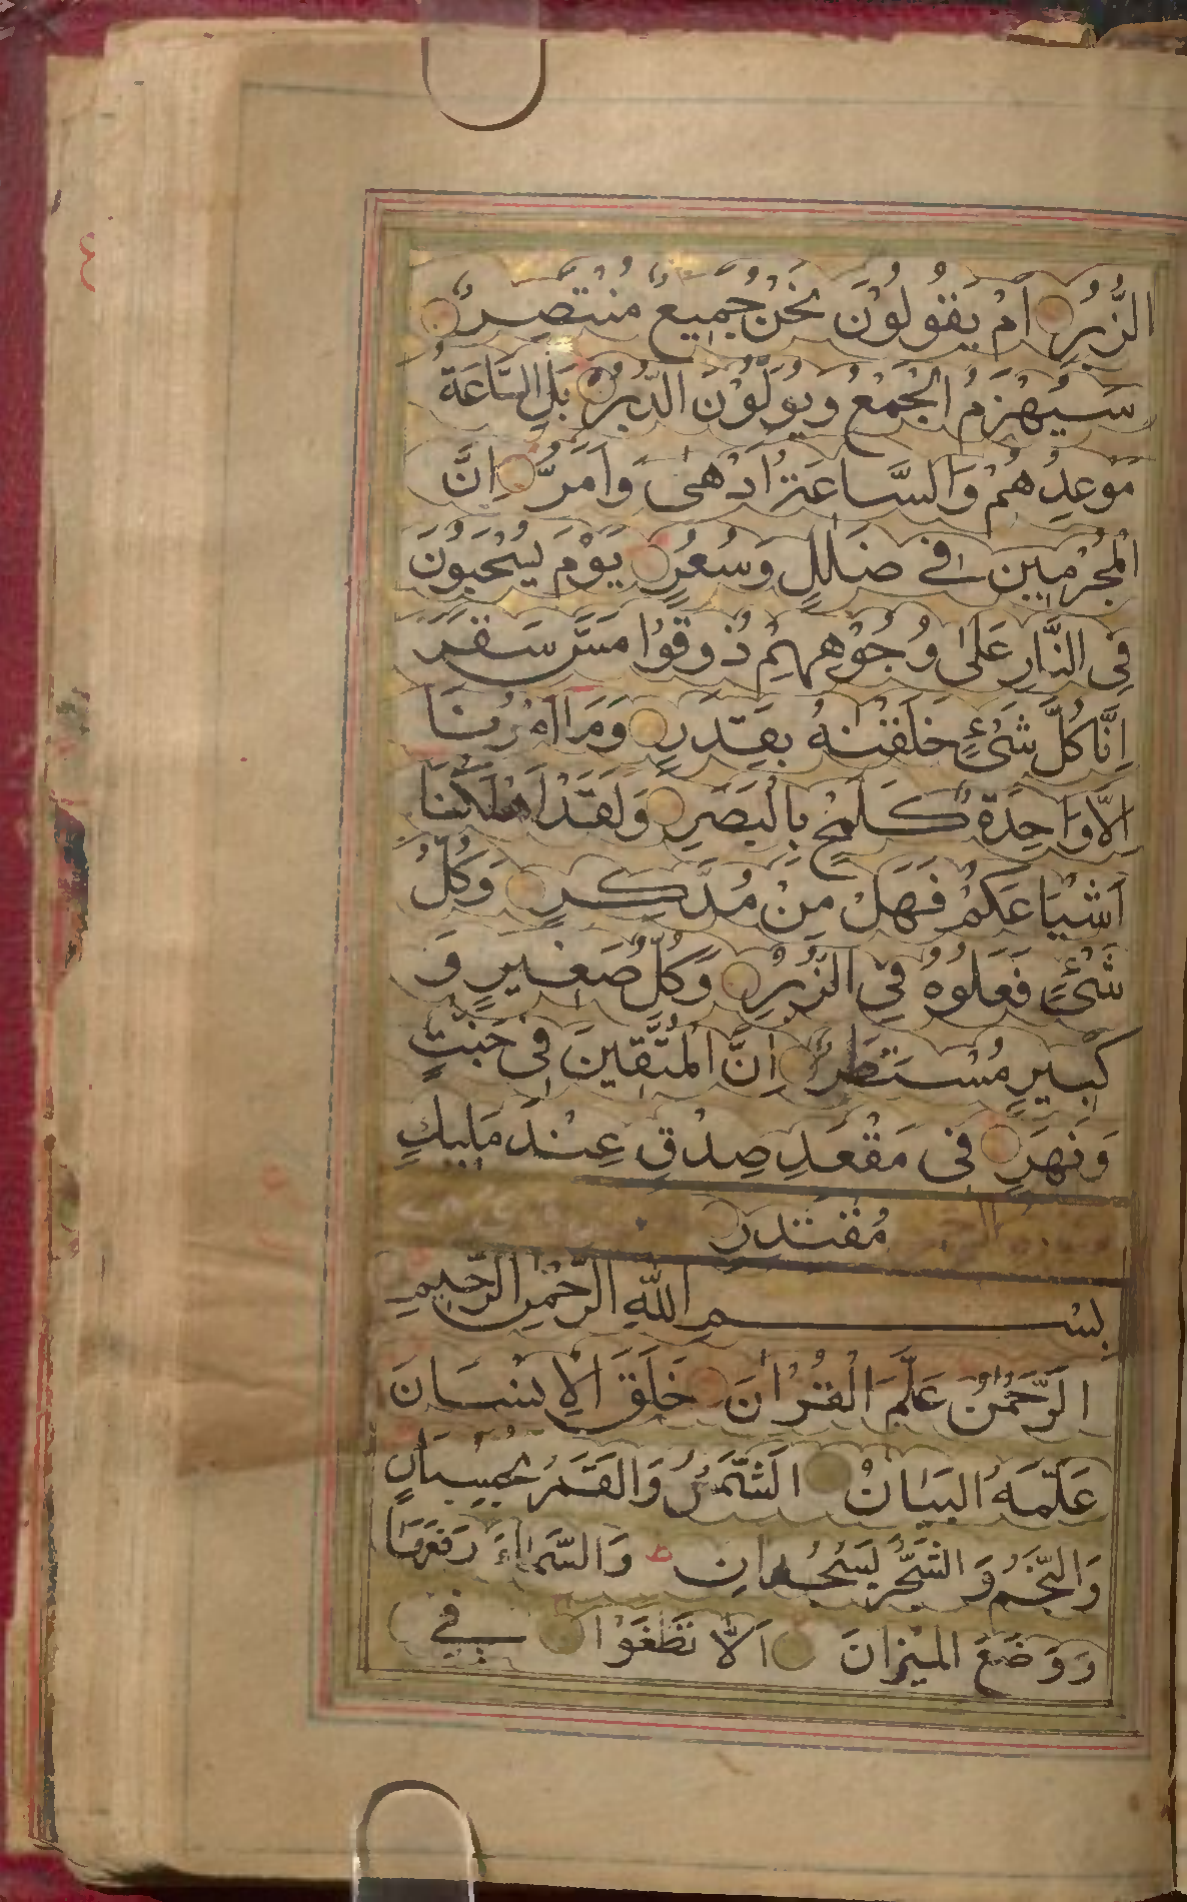 الزُّبُرِ اَمْ يَقُولُوْنَ نَحْنُ جَمِيْعٌ مُنْتَصِرٌ
سَيُهْزَمُ الْجَمْعُ وَيُوَلُّوْنَ الدُّبُرَ بَلِ السَّاعَةُ
مَوْعِدُهُمْ وَالسَّاعَةُ اَدْهٰى وَاَمَرُّ اِنَّ
الْمُجْرِمِيْنَ فِي ضَلٰلٍ وَسُعُرٍ يَوْمَ يُسْحَبُوْنَ
فِي النَّارِ عَلٰى وُجُوْهِهِمْ ذُوقُوْا مَسَّ سَقَرَ
اِنَّا كُلَّ شَيْءٍ خَلَقْنٰهُ بِقَدَرٍ وَمَا اَمْرُنَا
اِلَّا وَاحِدَةٌ كَلَمْحٍ بِالْبَصَرِ وَلَقَدْ اَهْلَكْنَا
اَشْيَاعَكُمْ فَهَلْ مِنْ مُدَّكِرٍ وَكُلُّ
شَيْءٍ فَعَلُوْهُ فِي الزُّبُرِ وَكُلُّ صَغِيْرٍ وَ
كَبِيْرٍ مُسْتَطَرٌ اِنَّ الْمُتَّقِيْنَ فِي جَنّٰتٍ
وَنَهَرٍ فِي مَقْعَدِ صِدْقٍ عِنْدَ مَلِيْكٍ
مُقْتَدِرٍ
بِسْمِ اللّٰهِ الرَّحْمٰنِ الرَّحِيْمِ
اَلرَّحْمٰنُ عَلَّمَ الْقُرْاٰنَ خَلَقَ الْاِنْسَانَ
عَلَّمَهُ الْبَيَانَ اَلشَّمْسُ وَالْقَمَرُ بِحُسْبَانٍ
وَالنَّجْمُ وَالشَّجَرُ يَسْجُدَانِ ط وَالسَّمَاءَ رَفَعَهَا
وَوَضَعَ الْمِيْزَانَ اَلَّا تَطْغَوْا فِي